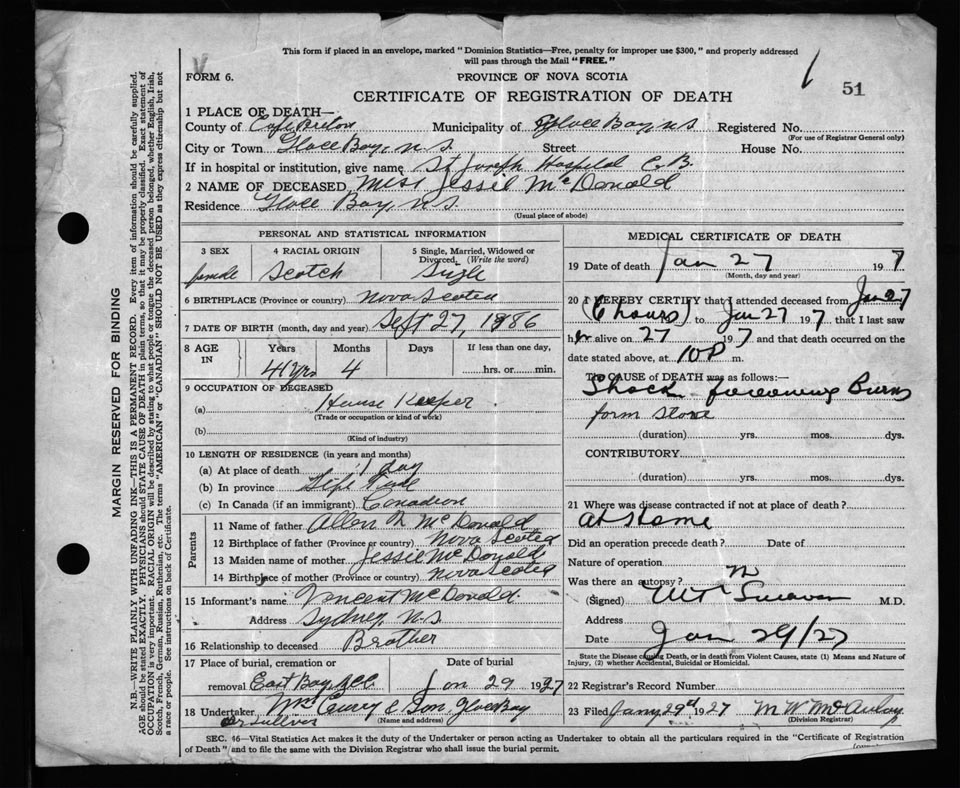 This form if placed in an envelope, marked "Dominion Statistics—Free, penalty for improper use $300," and properly addressed
will pass through the Mail "FREE."
FORM 6.
PROVINCE OF NOVA SCOTIA
51
CERTIFICATE OF REGISTRATION OF DEATH
1 PLACE OF DEATH—
County of Cape Breton Municipality of Glace Bay, N.S Registered No.
(For use of Registrar General only)
City or Town Glace Bay, N.S. Street House No.
If in hospital or institution, give name St Joseph Hospital C.B.
2 NAME OF DECEASED Miss Jessie McDonald
Residence Glace Bay, N.S.
(Usual place of abode)
PERSONAL AND STATISTICAL INFORMATION
3 SEX 4 RACIAL ORIGIN 5 Single, Married, Widowed or
Divorced. (Write the word)
female Scotch Single
6 BIRTHPLACE (Province or country) Nova Scotia
7 DATE OF BIRTH (month, day and year) Sept 27, 1886
8 AGE IN Years Months Days If less than one day,
41 yrs 4 hrs. or min.
9 OCCUPATION OF DECEASED
(a) House Keeper
(Trade or occupation or kind of work)
(b)
(Kind of industry)
10 LENGTH OF RESIDENCE (in years and months)
(a) At place of death 1 day
(b) In province Life Time
(c) In Canada (if an immigrant) Canadian
Parents
11 Name of father Allen McDonald
12 Birthplace of father (Province or country) Nova Scotia
13 Maiden name of mother Jessie McDonald
14 Birthplace of mother (Province or country) Nova Scotia
15 Informant's name Vincent McDonald.
Address Sydney, N.S
16 Relationship to deceased Brother
17 Place of burial, cremation or Date of burial
removal East Bay Jan 29 1927
18 Undertaker & Son Glace Bay
(Name and address)
MEDICAL CERTIFICATE OF DEATH
19 Date of death Jan 27 197
(Month, day and year)
20 I HEREBY CERTIFY that I attended deceased from Jan 27
(6 hours) to Jan 27 197, that I last saw
her alive on 27 197 and that death occurred on the
date stated above, at 10 P m.
The CAUSE OF DEATH was as follows:—
Shock following Burns
form stove
(duration) yrs. mos. dys.
CONTRIBUTORY
(duration) yrs. mos. dys.
21 Where was disease contracted if not at place of death?
At Home
Did an operation precede death? Date of
Nature of operation
Was there an autopsy? N
(Signed) M.D.
Address
Date Jan 29/27
State the Disease causing Death, or in death from Violent Causes, state (1) Means and Nature of
Injury, (2) whether Accidental, Suicidal or Homicidal.
22 Registrar's Record Number
23 Filed Jany 29th 1927 M W McAulay
(Division Registrar)
SEC. 46—Vital Statistics Act makes it the duty of the Undertaker or person acting as Undertaker to obtain all the particulars required in the "Certificate of Registration
of Death" and to file the same with the Division Registrar who shall issue the burial permit.
MARGIN RESERVED FOR BINDING
N.B.—WRITE PLAINLY WITH UNFADING INK—THIS IS A PERMANENT RECORD. Every item of information should be carefully supplied.
AGE should be stated EXACTLY. PHYSICIANS should STATE CAUSE OF DEATH in plain terms, so that it may be properly classified. Exact statement of
OCCUPATION is very important. RACIAL ORIGIN will be described by stating to what people or tongue the deceased person belonged, whether English, Irish,
Scotch, French, German, Russian, Ruthenian, etc. The terms "AMERICAN" or "CANADIAN" SHOULD NOT BE USED as they express citizenship but not
a race or people. See instructions on back of Certificate.